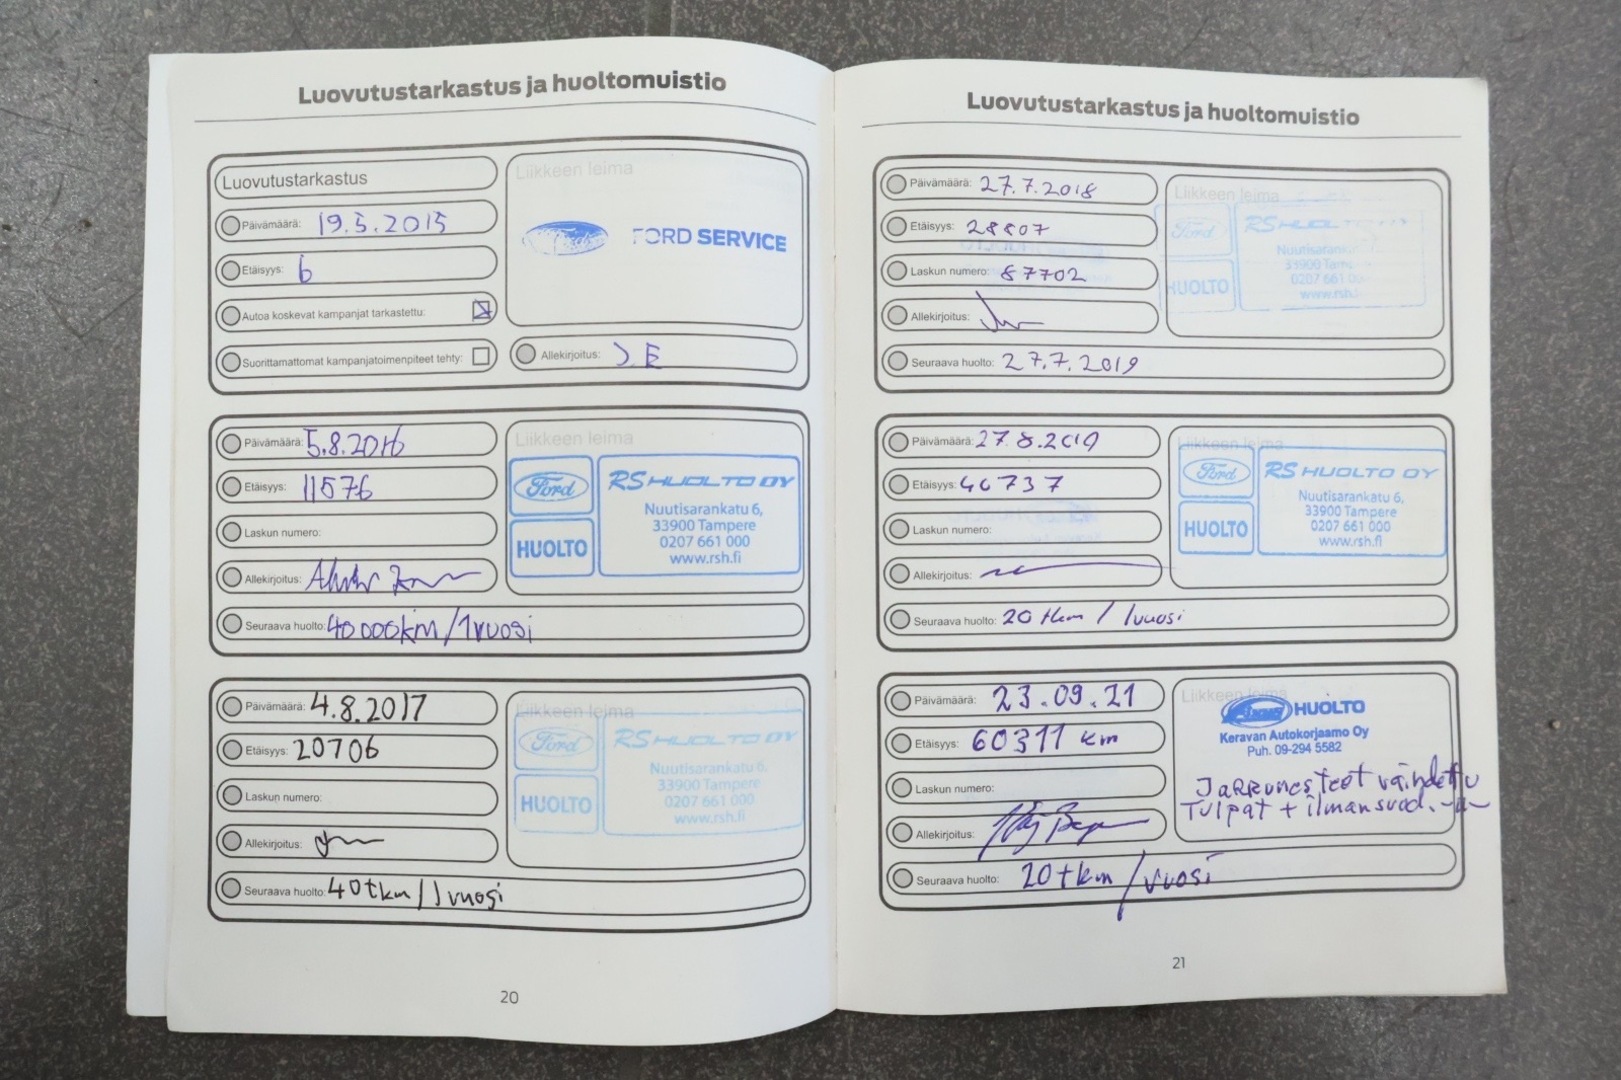 Luovutustarkastus ja huoltomuistio
Luovutustarkastus
Päivämäärä: 19.5.2015
Etäisyys: 6
Autoa koskevat kampanjat tarkastettu:
Suorittamattomat kampanjatoimenpiteet tehty:
Liikkeen leima
FORD SERVICE
Allekirjoitus: J.E
Päivämäärä: 5.8.2016
Etäisyys: 11576
Laskun numero:
Allekirjoitus:
Seuraava huolto: 40 000km/1vuosi
Liikkeen leima
Ford
HUOLTO
RS HUOLTO OY
Nuutisarankatu 6,
33900 Tampere
0207 661 000
www.rsh.fi
Päivämäärä: 4.8.2017
Etäisyys: 20706
Laskun numero:
Allekirjoitus:
Seuraava huolto: 40tkm/1vuosi
Liikkeen leima
Ford
HUOLTO
RS HUOLTO OY
Nuutisarankatu 6,
33900 Tampere
0207 661 000
www.rsh.fi
20
Luovutustarkastus ja huoltomuistio
Päivämäärä: 27.7.2018
Etäisyys: 28807
Laskun numero: 87702
Allekirjoitus:
Seuraava huolto: 27.7.2019
Liikkeen leima
Ford
HUOLTO
RS HUOLTO
Nuutisaran
33900 Tam
0207 661 00
www.rsh.
Päivämäärä: 27.8.2019
Etäisyys: 40737
Laskun numero:
Allekirjoitus:
Seuraava huolto: 20 tkm / 1vuosi
Liikkeen leima
Ford
HUOLTO
RS HUOLTO OY
Nuutisarankatu 6,
33900 Tampere
0207 661 000
www.rsh.fi
Päivämäärä: 23.09.21
Etäisyys: 60311 km
Laskun numero:
Allekirjoitus:
Seuraava huolto: 20tkm/vuosi
Liikkeen leima
HUOLTO
Keravan Autokorjaamo Oy
Puh. 09-294 5582
Jarrunesteet vaihdettu
Tulpat + ilmansuod. -||-
21